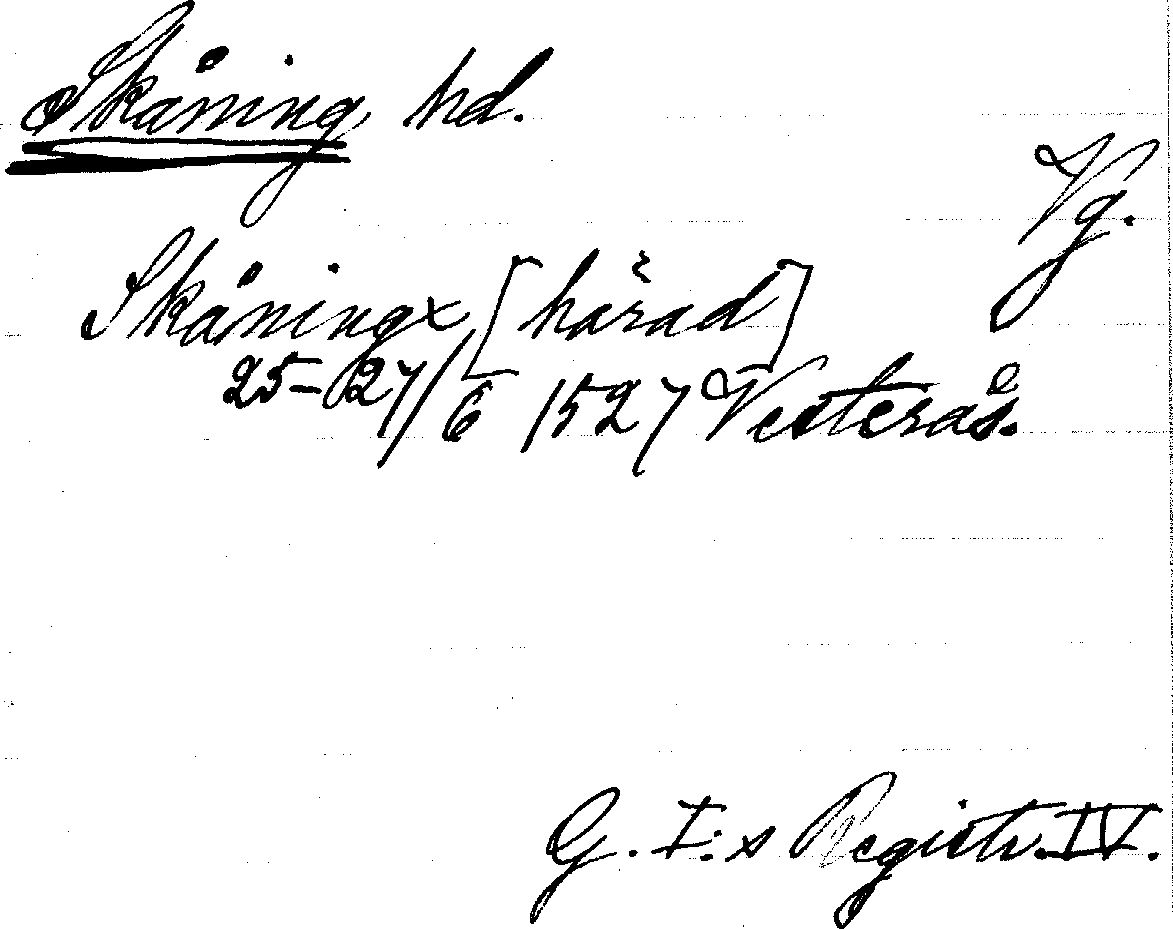 Skåning hd.
Vg.
Skåningx [härad]
25-27/6 1527 Vesterås.
G. I:s Registr. IV.